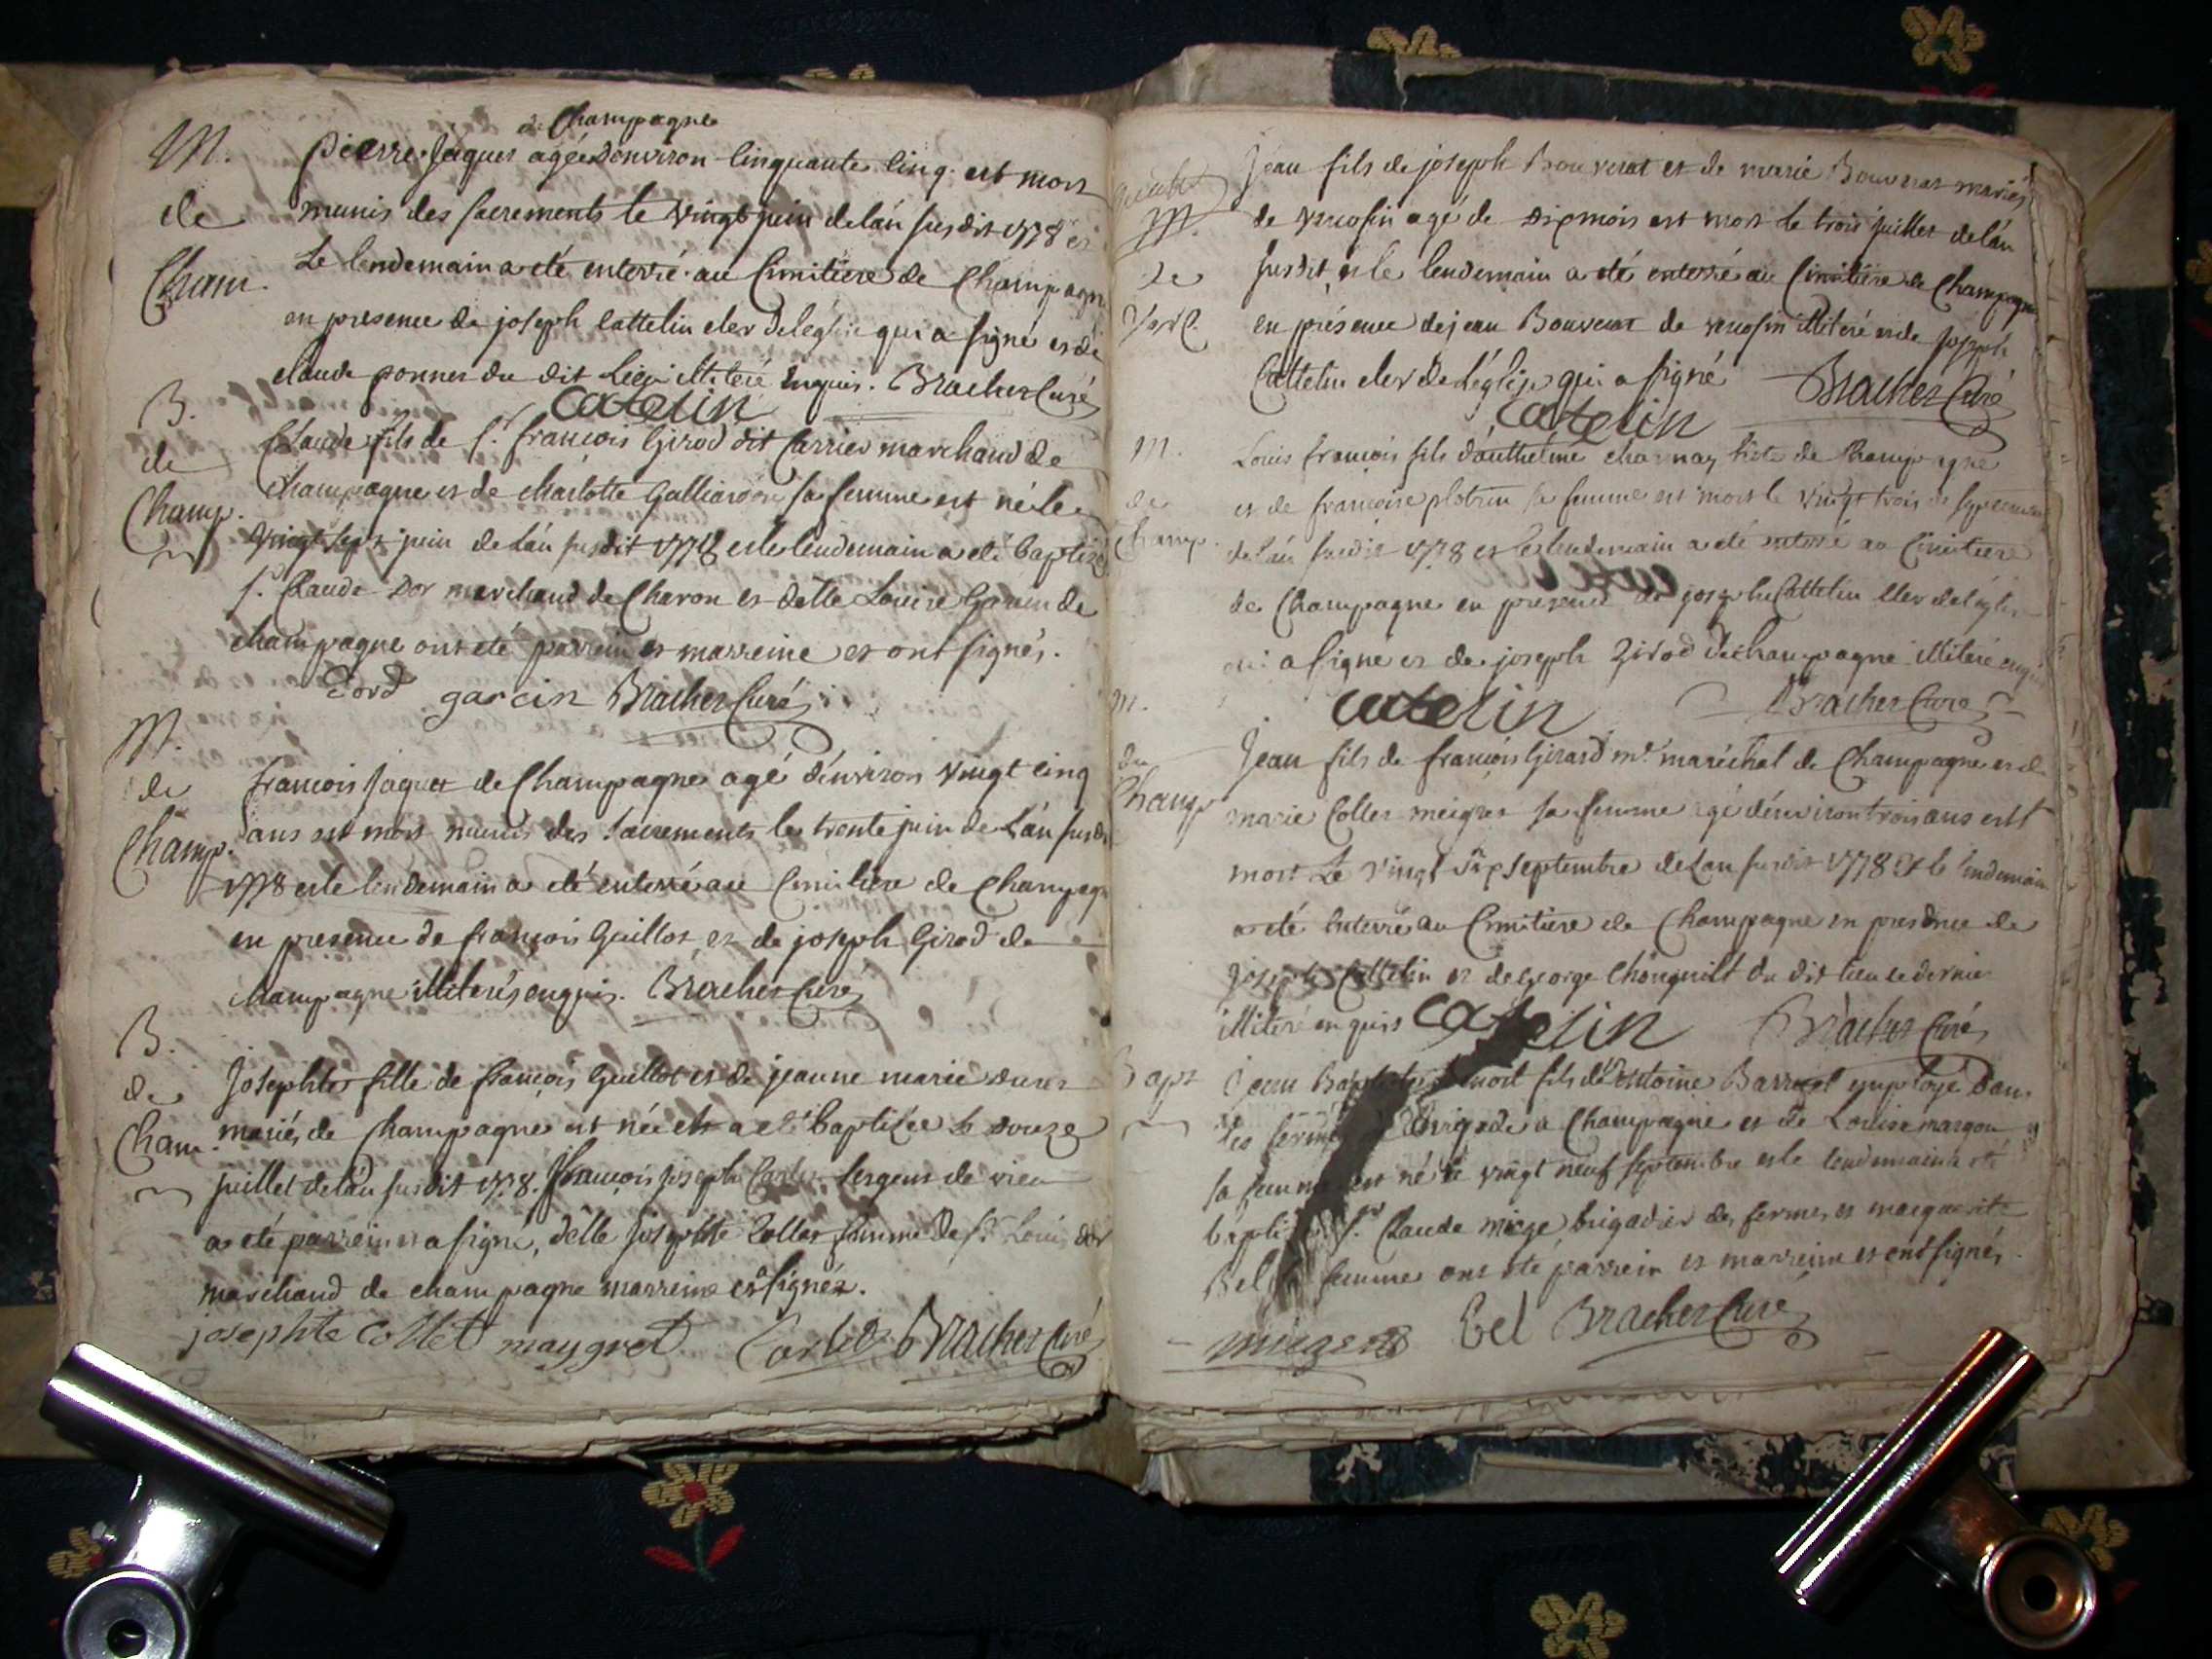 de Champagne
M. Pierre Jaques agée denviron Cinquante Cinq est mort
de munis des sacrements le vingt juin de lán susdit 1778 et
Cham. Le lendemain a été enterré au Cimitiere de Champagne
en presence de joseph Cattelin cler de léglise qui a signé et de
claude ponnet du dit Lieu illiteré Enquis. Bracher Curé
catelin
B. Claude fils de s.r françois Girod dit Carrier marchand de
de Champagne et de charlotte Galliardon sa femme est né le
Champ. vingt sept juin de Lán susdit 1778 et le lendemain a été baptizé
s.r Claude Dor marchand de Charon et delle Louise Garcin de
champagne ont été parrein et marreine et ont signés.
Dord garcin Bracher Curé
M.
de françois Jaquet de Champagne agé d'environ vingt cinq
Champ. ans est mort munis des sacrements le trente juin de Lán susdit
1778 et le lendemain a été enterré au Cimitiere de Champagne
en presence de françois Guillot et de joseph Girod de
champagne illiterés enquis. Bracher Curé
B.
de Josephte fille de françois Guillot et de jeanne marie
Cham. mariés de Champagne est née et a été baptizée le douze
juillet de lán susdit 1778. françois joseph sergent de vieu
a été parrein et a signé, delle josephte Collet femme de s.r Louis dor
marchand de champagne marreine et signée.
josephte Collet maygret Bracher Curé
Jean fils de joseph Bouverat et de marie Bouverat mariés
M. de agé de Dix mois est mort le trois juillet de lán
de susdit et le lendemain a été enterré au Cimitiere de Champagne
en présence de jean Bouverat de illiteré et de joseph
Cattelin cler de Léglise qui a signé Bracher Curé
catelin
M. Louis françois fils dánthelme charnay hôte de Champagne
de et de françoise sa femme est mort le vingt trois de septembre
Champ. de lán susdit 1778 et le lendemain a été enterré au Cimitiere
de Champagne en presence de joseph Cattelin Cler de léglise
qui a signé et de joseph Girod de champagne illiteré enquis
M. catelin Bracher Curé
de Jean fils de françois Girard m.e maréchal de Champagne et de
Champ marie Collet meigret sa femme agé dénviron trois ans est
mort Le vingt six septembre de Lan susdit 1778 Et le lendemain
a été Enterré au Cimitiere de Champagne en presence de
joseph Cattelin et de George du dit lieu ce dernier
illiteré enquis catelin Bracher Curé
Bapt jean Baptiste fils dé antoine employé dans
les fermes brigade a Champagne et de Louise
sa femme est né le vingt neuf septembre et le lendemain a été
baptisé s.r Claude miege brigadier des fermes et marguerite
Bel sa femme ont été parrein et marreine et ont signés.
miege bel Bracher Curé